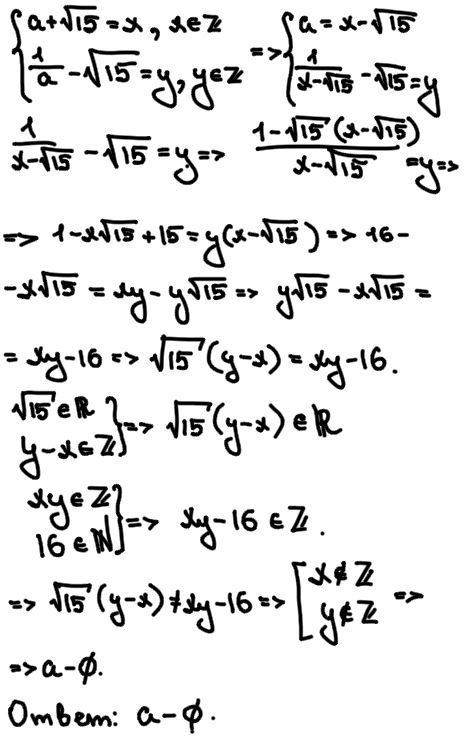 {a+√15=x, x∈ℤ => {a=x-√15
{1/a-√15=y, y∈ℤ {1/(x-√15)-√15=y
1/(x-√15)-√15=y=> (1-√15(x-√15))/(x-√15)=y=>
=> 1-x√15+15=y(x-√15)=>16-
-x√15=xy-y√15=> y√15-x√15=
=xy-16=>√15(y-x)=xy-16.
√15∈ℝ
y-x∈ℤ}=>√15(y-x)∈ℝ
xy∈ℤ
16∈ℕ}=> xy-16∈ℤ.
=>√15(y-x)≠xy-16=>[x∉ℤ
y∉ℤ =>
=>a-∅.
Ответ: a-∅.